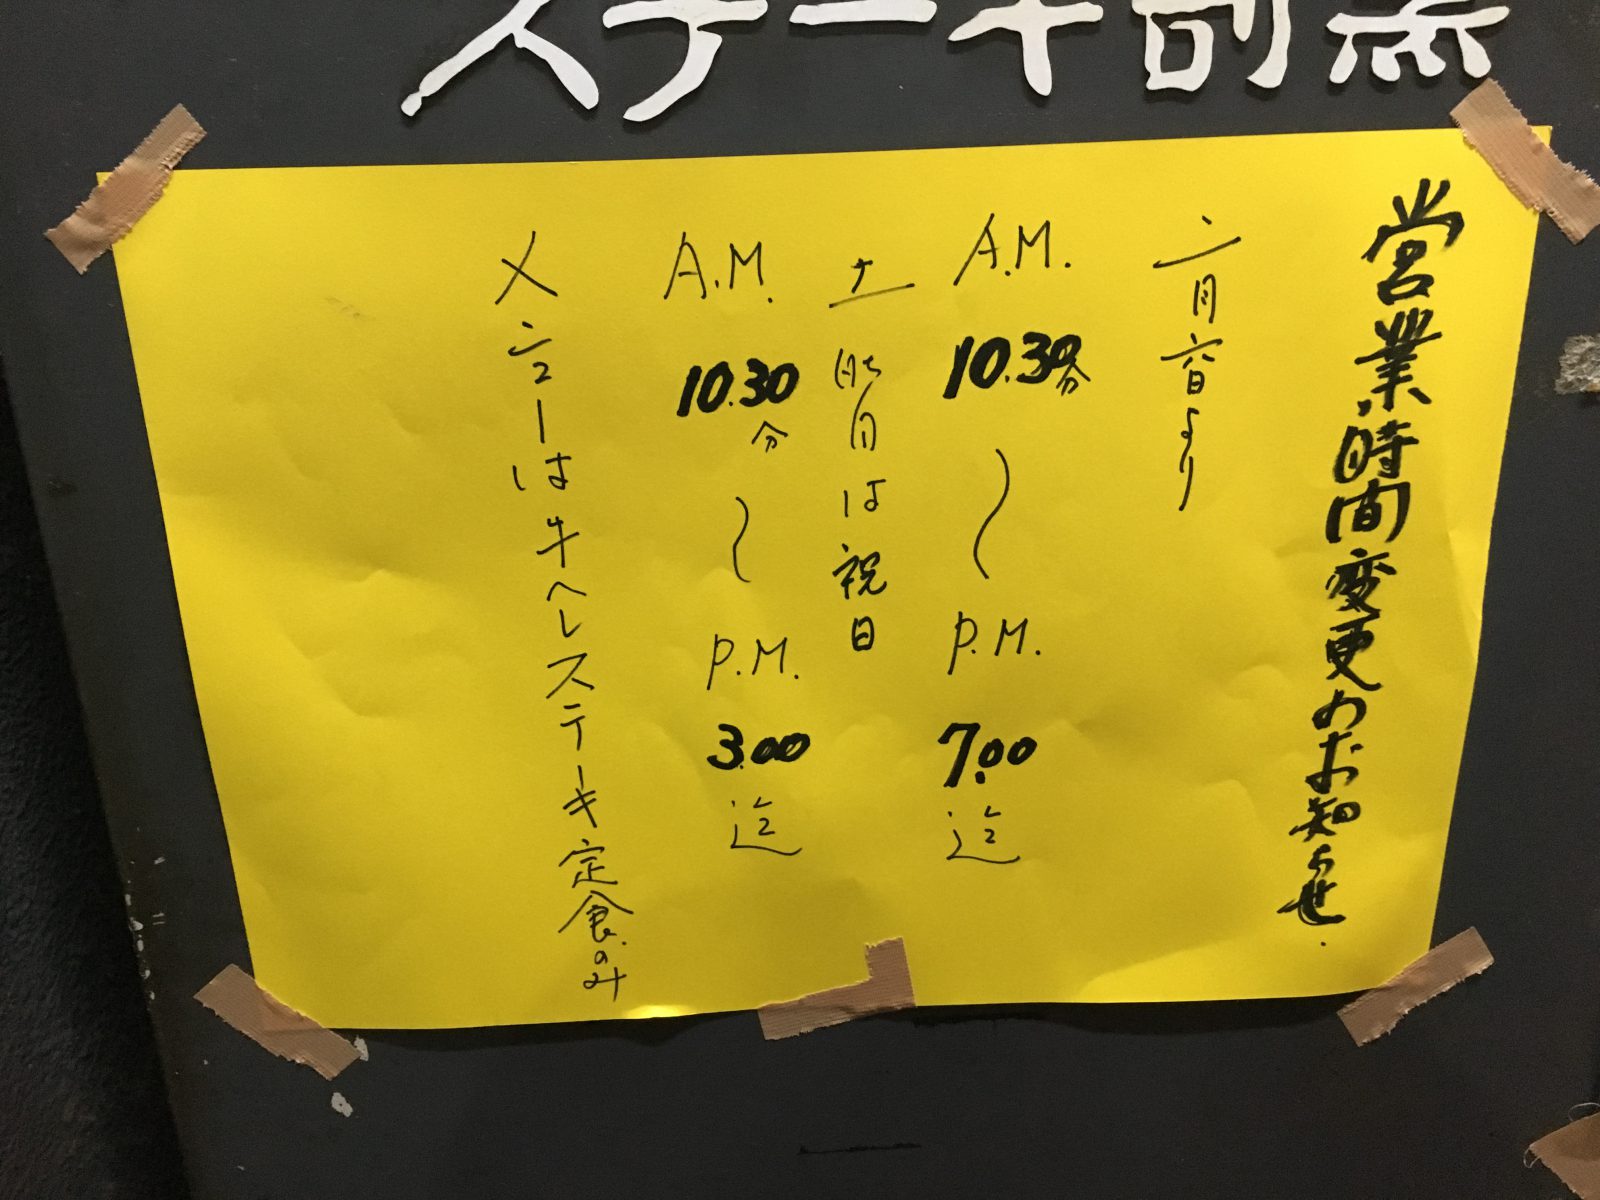 ステーキ割烹
営業時間変更のお知らせ.
二月六日より
A.M. 10.30分 〜 P.M. 7.00迄
土曜日は祝日
A.M. 10.30分 〜 P.M. 3.00迄
メニューは牛ヘレステーキ定食のみ